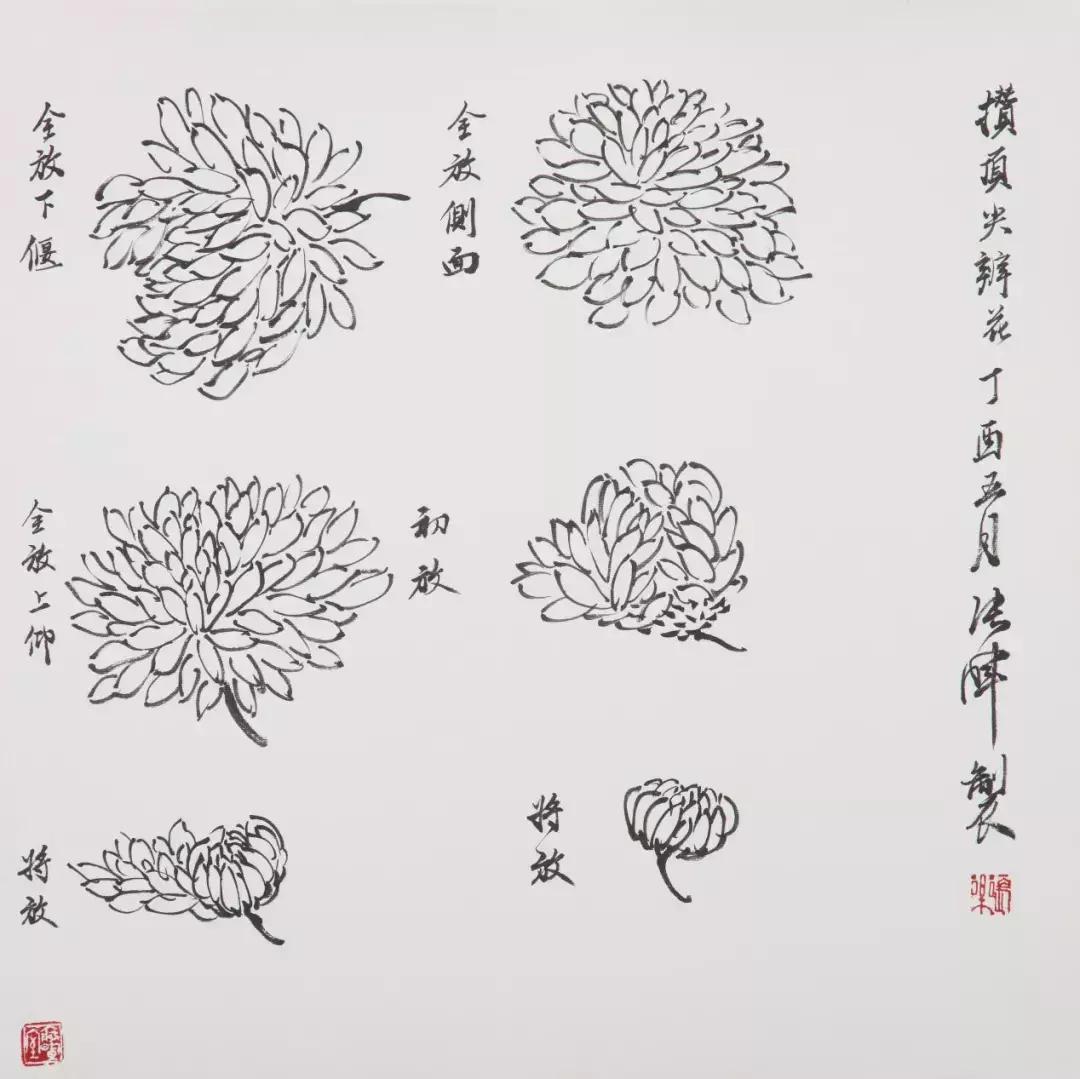 攒頂尖瓣花丁酉五月法陣製
全放側面
全放下偃
初放
全放上仰
将放
将放